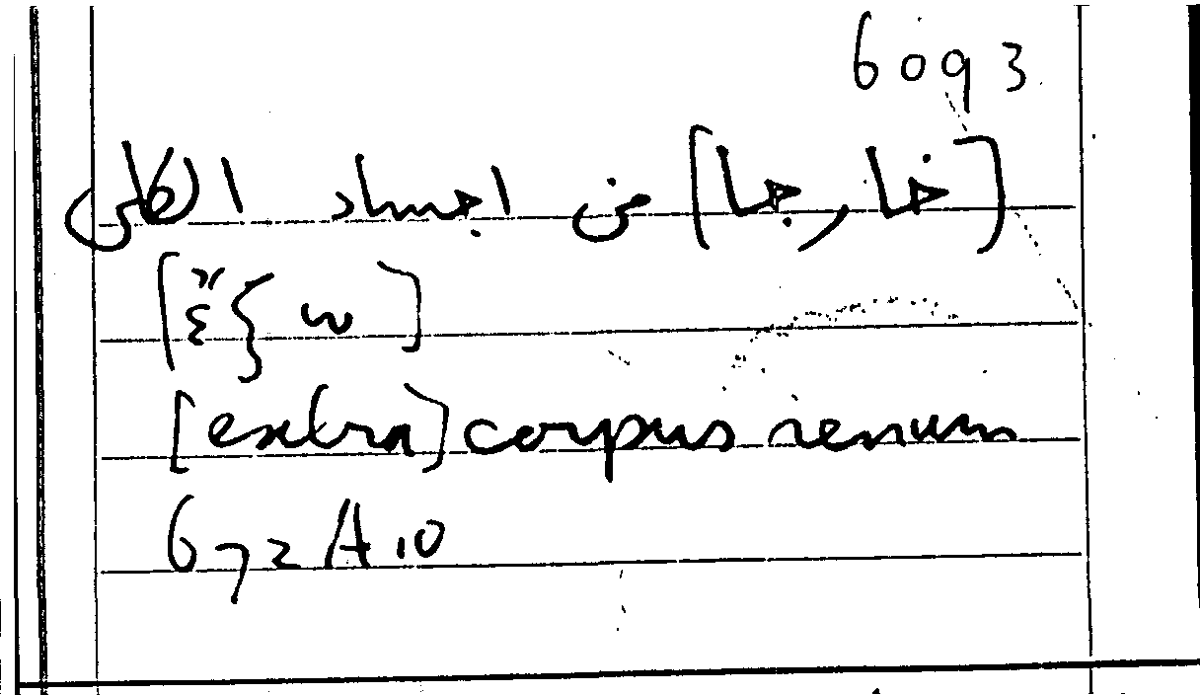 6093
[خارجا] من اجساد الكلى
[ἔξω]
[extra] corpus renum
672 A 10